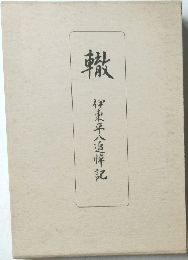 轍
伊東平八追悼記